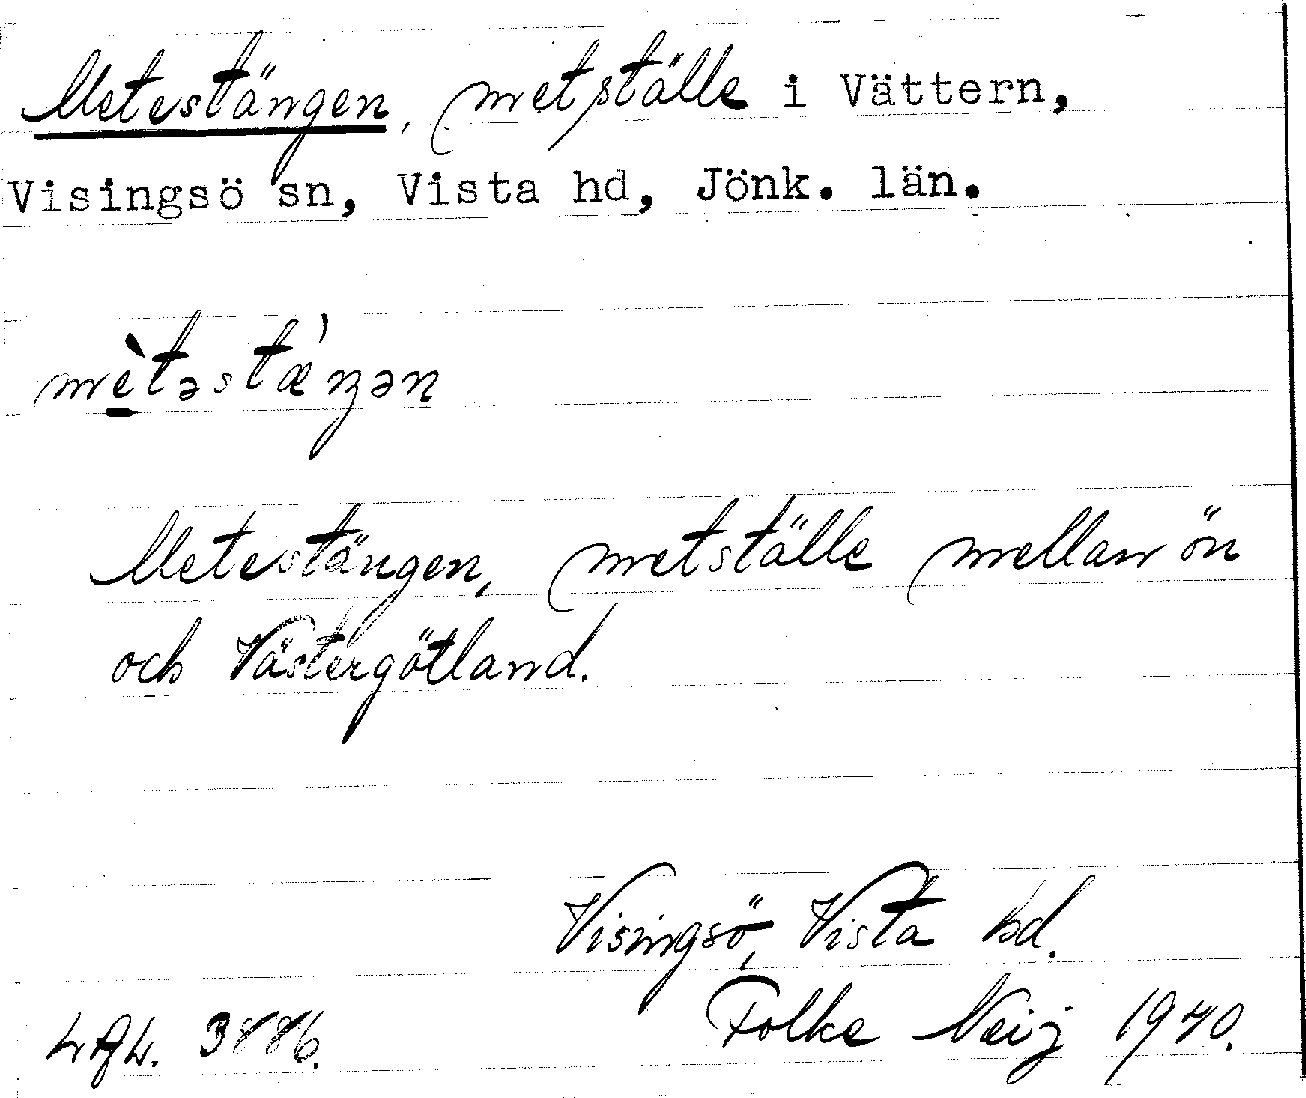 Metestängen, metställe i Vättern,
Visingsö sn, Vista hd, Jönk. län.
mètəstæ̀ŋən
Metestängen, metställe mellan ön
och Västergötland.
Visingsö, Vista hd.
Folke Neij 1940.
3886.